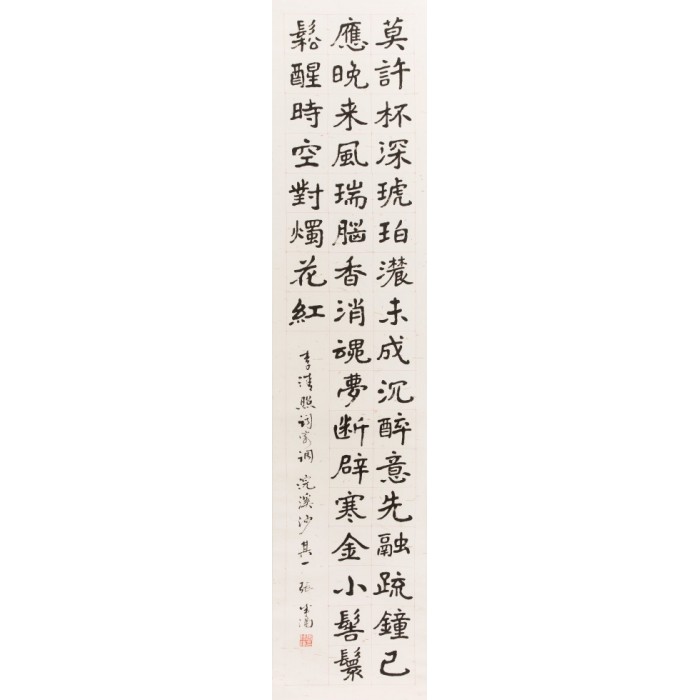 莫許杯深琥珀濃未成沉醉意先融疏鐘已
應晚来風瑞脳香消魂夢断辟寒金小髻鬟
鬆醒時空對燭花紅
李清照詞寄调浣溪沙其一 張